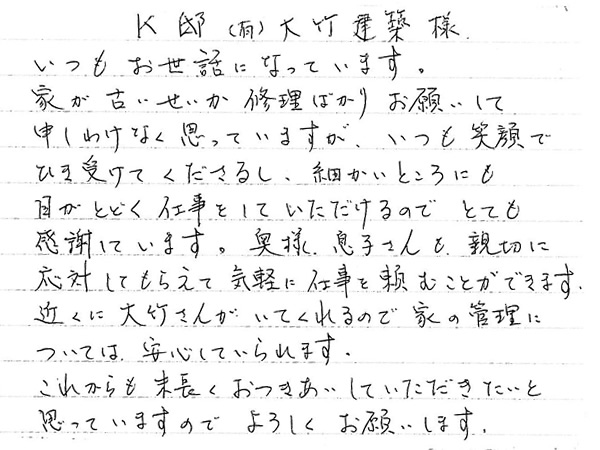 K邸 (有)大竹建築様.
いつもお世話になっています。
家が古いせいか修理ばかりお願いして
申しわけなく思っていますが、いつも笑顔で
ひき受けてくださるし、細かいところにも
目がとどく仕事をしていただけるのでとても
感謝しています。奥様、息子さんも親切に
応対してもらえて気軽に仕事を頼むことができます.
近くに大竹さんがいてくれるので家の管理に
ついては安心していられます.
これからも末長くおつきあいしていただきたいと
思っていますのでよろしくお願いします.